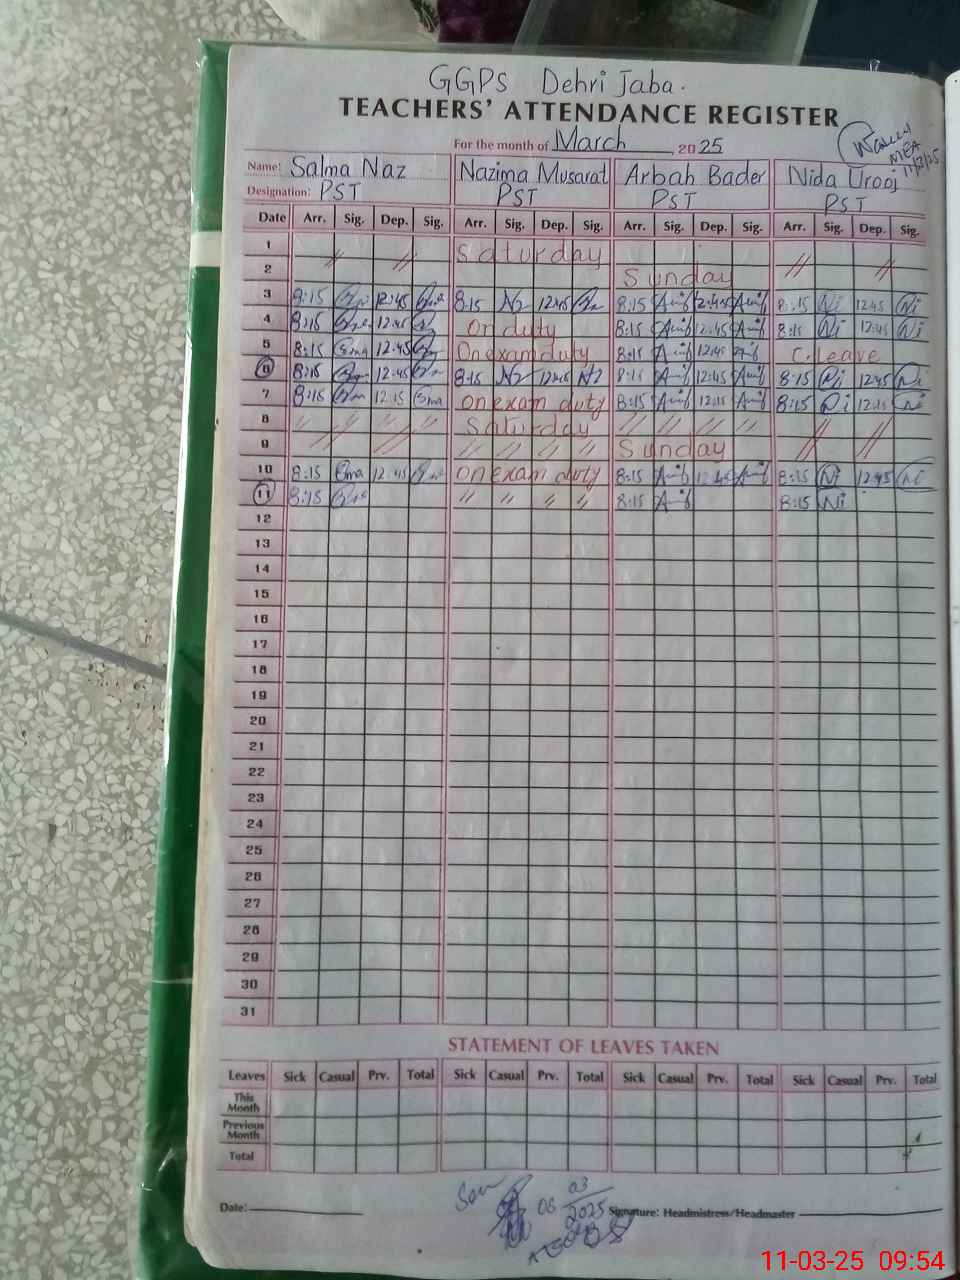 GGPS Dehri Jaba.
TEACHERS' ATTENDANCE REGISTER
For the month of March 2025
MEA
11/3/25
Name: Salma Naz Nazima Musarat Arbah Bader Nida Urooj
Designation: PST PST PST PST
Date Arr. Sig. Dep. Sig. Arr. Sig. Dep. Sig. Arr. Sig. Dep. Sig. Arr. Sig. Dep. Sig.
1 // // Saturday // //
2 Sunday
3 8:15 12:45 8:15 Nz 12:45 8:15 12:45 8:15 Ni 12:45 Ni
4 8:15 12:45 On duty 8:15 12:45 8:15 Ni 12:45 Ni
5 8:15 Sma 12:45 On exam duty 8:15 12:45 C. Leave
6 8:15 12:45 8:15 Nz 12:45 Nz 8:15 12:45 8:15 Ni 12:45 Ni
7 8:15 12:15 Sma on exam duty 8:15 12:15 8:15 Ni 12:15 Ni
8 // // // // Saturday // // // // // //
9 // // // // // // Sunday
10 8:15 Sma 12:45 on exam duty 8:15 12:45 8:15 Ni 12:45 Ni
11 8:15 // // // // 8:15 8:15 Ni
12
13
14
15
16
17
18
19
20
21
22
23
24
25
26
27
28
29
30
31
STATEMENT OF LEAVES TAKEN
Leaves Sick Casual Prv. Total Sick Casual Prv. Total Sick Casual Prv. Total Sick Casual Prv. Total
This Month
Previous Month
Total
06 03 2025
Date: Signature: Headmistress/Headmaster
11-03-25 09:54